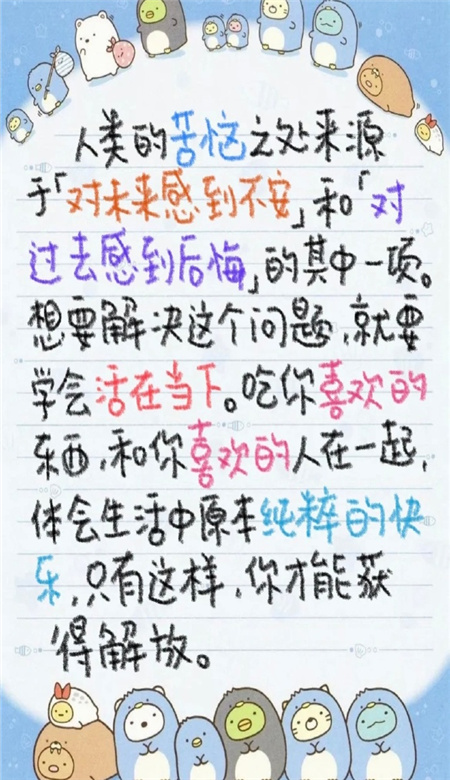 人类的苦恼之处来源
于「对未来感到不安」和「对
过去感到后悔」的其中一项。
想要解决这个问题,就要
学会活在当下。吃你喜欢的
东西,和你喜欢的人在一起,
体会生活中原本纯粹的快
乐,只有这样,你才能获
得解放。